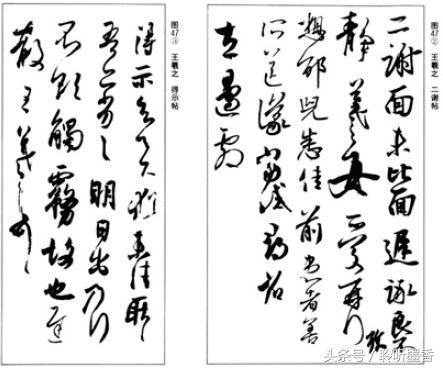 图47② 王羲之 二谢帖
二謝面未比面遲詠良不
靜羲之女愛再拜
想邰兒悉佳前患者善
所送議當試尋省
左邊劇
图47③ 王羲之 得示帖
得示知足下猶未佳耿耿
吾亦劣劣明日出乃行
不欲觸霧故也遲
散王羲之頓首
头条号 / 聆听墨香